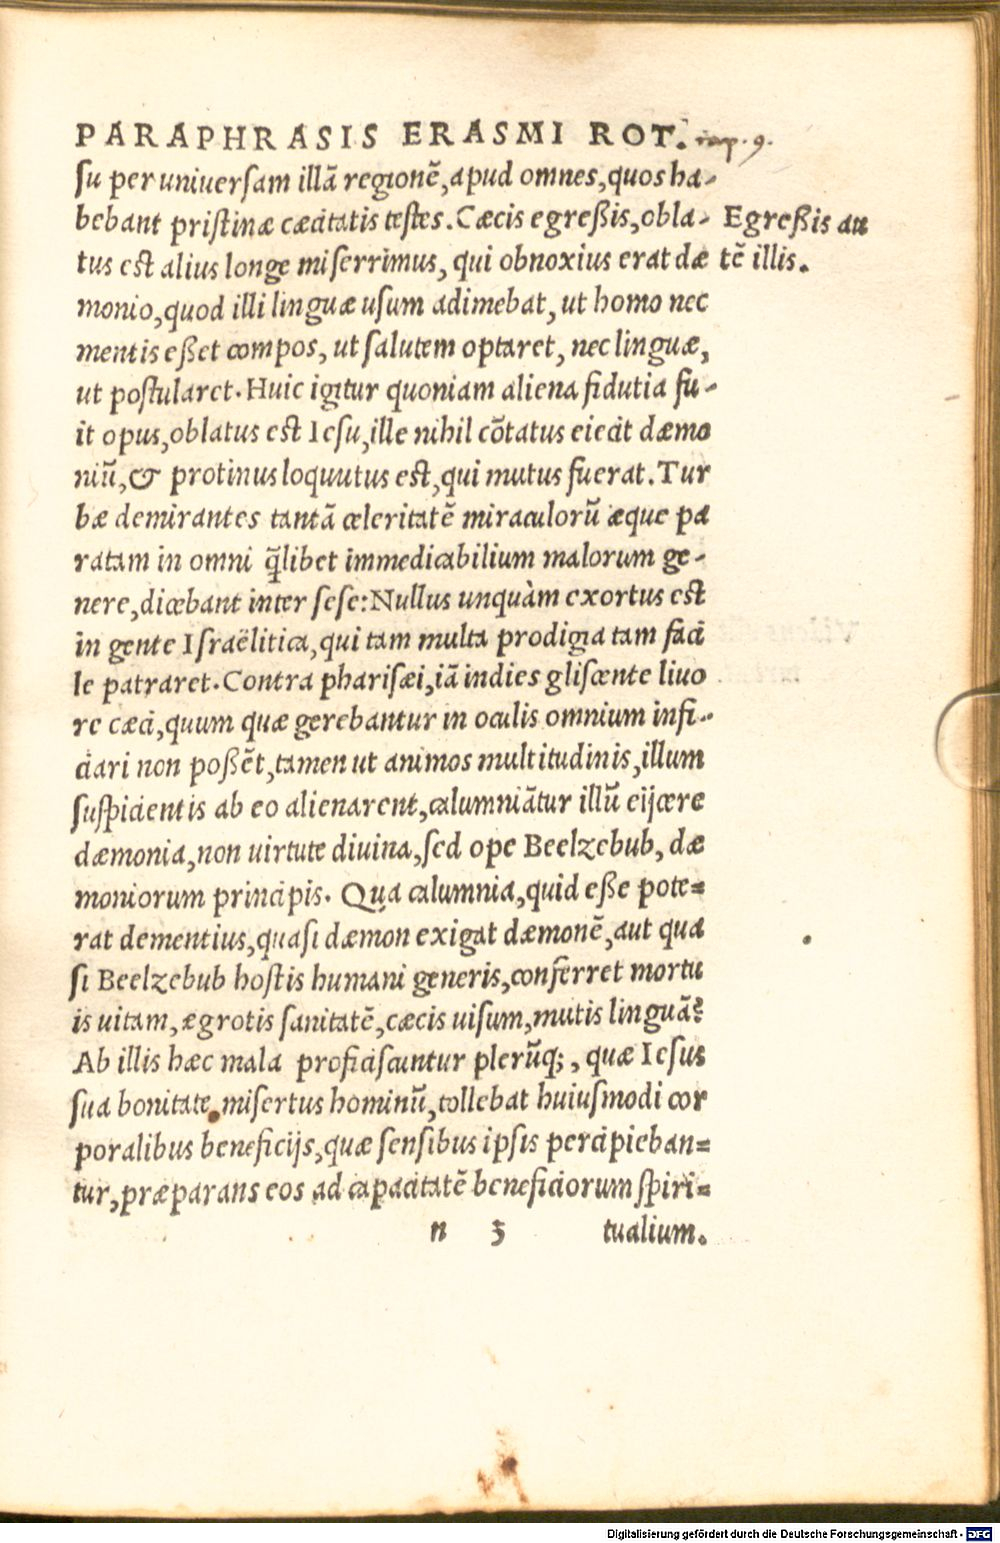 PARAPHRASIS ERASMI ROT. cap. 9.
su per uniuersam illā regionē, apud omnes, quos ha-
bebant pristinæ cæcitatis testes. Cæcis egreßis, obla-
Egreßis au
tus est alius longe miserrimus, qui obnoxius erat dæ
tē illis.
monio, quod illi linguæ usum adimebat, ut homo nec
mentis eßet compos, ut salutem optaret, nec linguæ,
ut postularet. Huic igitur quoniam aliena fidutia fu-
it opus, oblatus est Iesu, ille nihil cōtatus eiecit dæmo
niū, & protinus loquutus est, qui mutus fuerat. Tur
bæ demirantes tantā celeritatē miraculorū æque pa
ratam in omni q̃libet immedicabilium malorum ge-
nere, dicebant inter sese: Nullus unquàm exortus est
in gente Israëlitica, qui tam multa prodigia tam faci
le patraret. Contra pharisæi, iā indies gliscente liuo
re cæci, quum quæ gerebantur in oculis omnium infi-
ciari non poßēt, tamen ut animos multitudinis, illum
suspicientis ab eo alienarent, calumniātur illū eijcere
dæmonia, non uirtute diuina, sed ope Beelzebub, dæ
moniorum principis. Qua calumnia, quid eße pote=
rat dementius, quasi dæmon exigat dæmonē, aut qua
si Beelzebub hostis humani generis, conferret mortu
is uitam, ægrotis sanitatē, cæcis uisum, mutis linguā?
Ab illis hæc mala proficiscuntur plerūq;, quæ Iesus
sua bonitate misertus hominū, tollebat huiusmodi cor
poralibus beneficijs, quæ sensibus ipsis percipieban=
tur, præparans eos ad capacitatē beneficiorum spiri=
n 3 tualium.
Digitalisierung gefördert durch die Deutsche Forschungsgemeinschaft - DFG